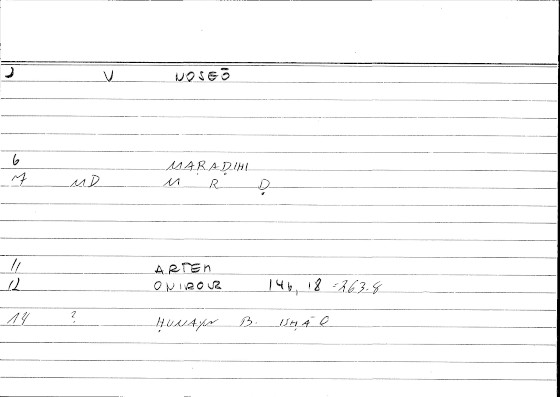 V NOSEŌ
6 MARAḌIHI
7 MD M R Ḍ
11 ARTEM
12 146, 18 =263.8
14 ? ḤUNAYN B. ISḤĀQ